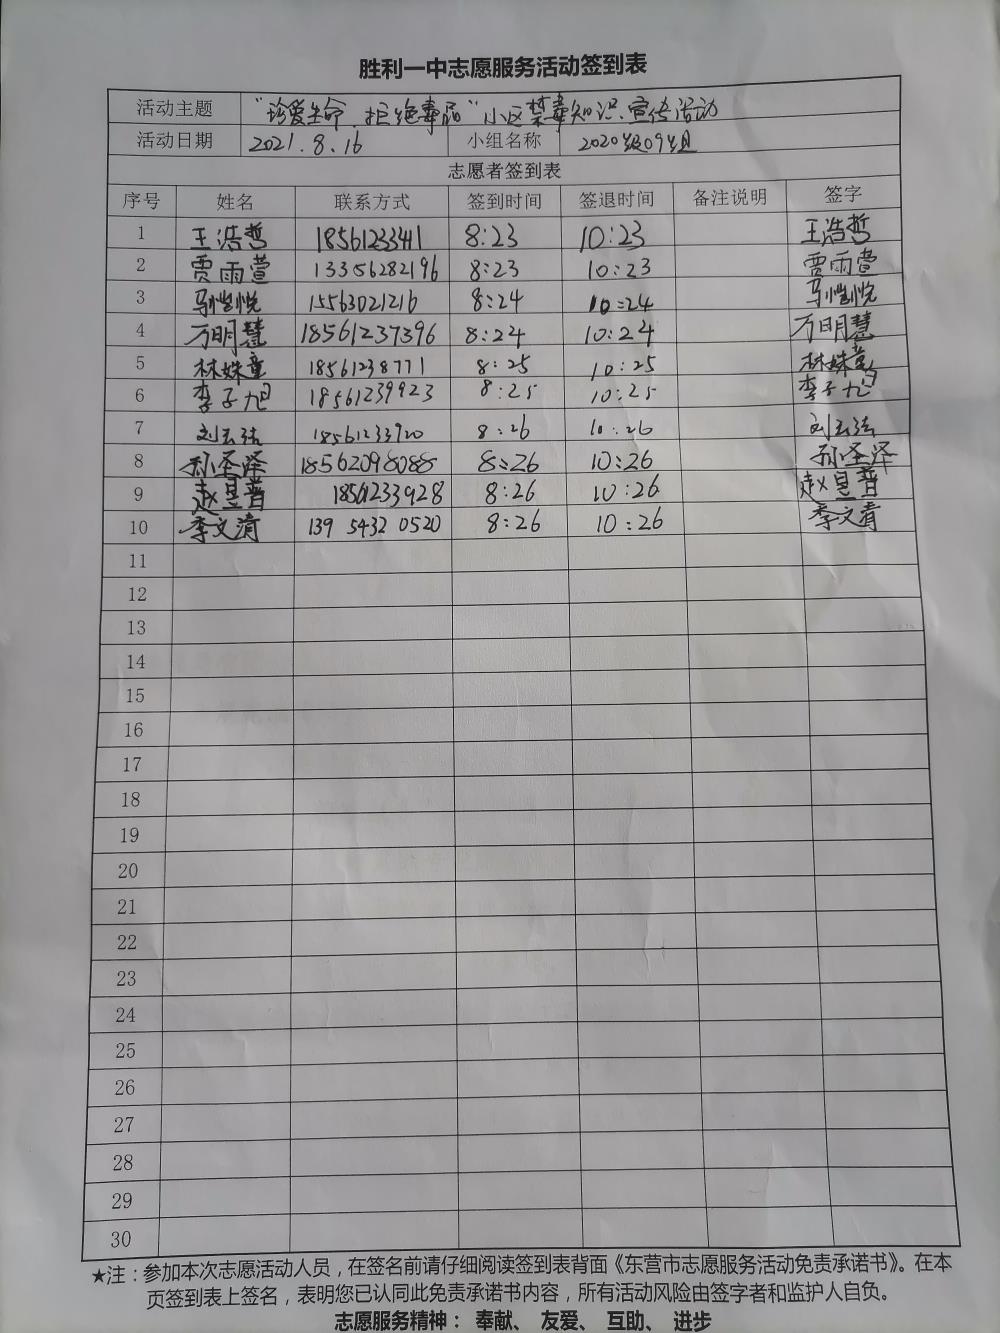 胜利一中志愿服务活动签到表
活动主题 “珍爱生命,拒绝毒品”小区禁毒知识宣传活动
活动日期 2021.8.16 小组名称 2020级09组
志愿者签到表
序号 姓名 联系方式 签到时间 签退时间 备注说明 签字
1 王浩哲 18561233441 8:23 10:23 王浩哲
2 贾雨萱 13356282196 8:23 10:23 贾雨萱
3 马恺悦 15563021216 8:24 10:24 马恺悦
4 万明慧 18561237396 8:24 10:24 万明慧
5 林姝童 18561238771 8:25 10:25 林姝童
6 李子旭 18561239923 8:25 10:25 李子旭
7 刘云 18561233920 8:26 10:26 刘云
8 孙圣泽 18562098088 8:26 10:26 孙圣泽
9 赵昱普 18561233928 8:26 10:26 赵昱普
10 李文清 139 5432 0520 8:26 10:26 李文清
11
12
13
14
15
16
17
18
19
20
21
22
23
24
25
26
27
28
29
30
★注:参加本次志愿活动人员,在签名前请仔细阅读签到表背面《东营市志愿服务活动免责承诺书》。在本
页签到表上签名,表明您已认同此免责承诺书内容,所有活动风险由签字者和监护人自负。
志愿服务精神: 奉献、 友爱、 互助、 进步